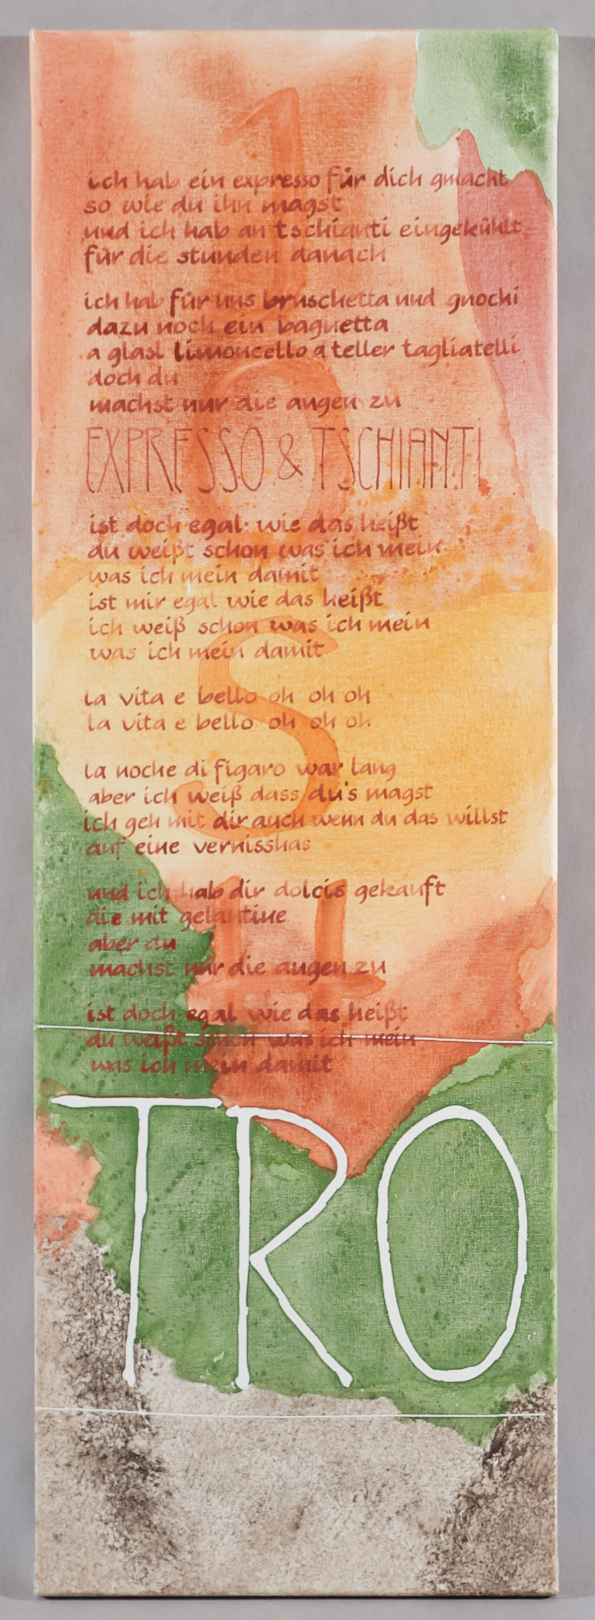 ich hab ein expresso für dich gmacht
so wie du ihn magst
und ich hab an tschianti eingekühlt
für die stunden danach
ich hab für uns bruschetta und gnochi
dazu noch ein baguetta
a glasl limoncello a teller tagliatelli
doch du
machst nur die augen zu
EXPRESSO & TSCHIANTI
ist doch egal wie das heißt
du weißt schon was ich mein
was ich mein damit
ist mir egal wie das heißt
ich weiß schon was ich mein
was ich mein damit
la vita e bello oh oh oh
la vita e bello oh oh oh
la noche di figaro war lang
aber ich weiß dass du's magst
ich geh mit dir auch wenn du das willst
auf eine vernisshas
und ich hab dir dolcis gekauft
die mit gelantine
aber du
machst nur die augen zu
ist doch egal wie das heißt
du weißt schon was ich mein
was ich mein damit
TRO